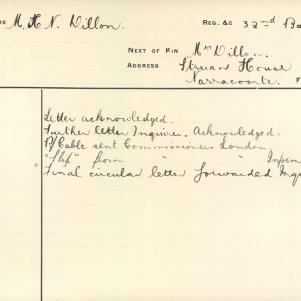 M. H. N. Dillon. REG. &C 32nd Ba
NEXT OF KIN Mrs Dillon.
ADDRESS Struan House
Narracoorte.
Letter acknowledged.
Further letter Inquirer. Acknowledged.
P/Cable sent Commissioners London
"Slip" from " "
Final circular letter forwarded Inq